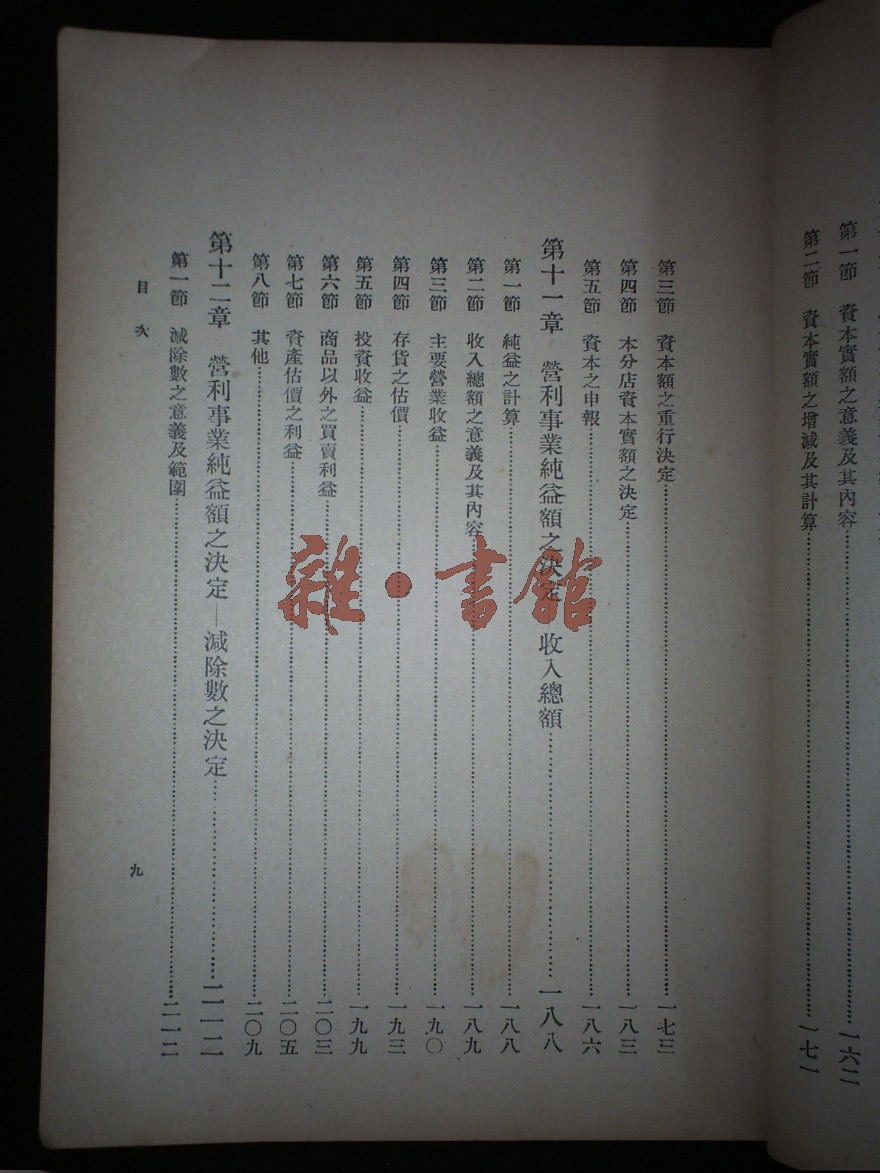 第一節　資本實額之意義及其內容……一六二
第二節　資本實額之增減及其計算……一七一
第三節　資本額之重行決定……一七三
第四節　本分店資本實額之決定……一八三
第五節　資本之申報……一八六
第十一章　營利事業純益額之決定　收入總額……一八八
第一節　純益之計算……一八八
第二節　收入總額之意義及其內容……一八九
第三節　主要營業收益……一九〇
第四節　存貨之估價……一九三
第五節　投資收益……一九九
第六節　商品以外之買賣利益……二〇三
第七節　資產估價之利益……二〇五
第八節　其他……二〇九
第十二章　營利事業純益額之決定—減除數之決定……二一二
第一節　減除數之意義及範圍……二一二
目次
九
雜·書館